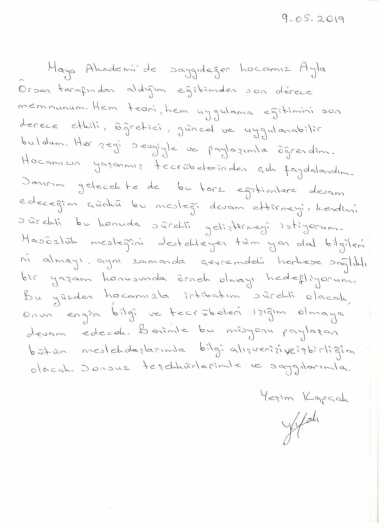 9.05.2019
Maya Akademi'de saygıdeğer hocamız Ayla
Örsan tarafından aldığım eğitimden son derece
memnunum. Hem teori, hem uygulama eğitimini son
derece etkili, öğretici, güncel ve uygulanabilir
buldum. Her şeyi sevgiyle ve paylaşımla öğrendim.
Hocamızın yaşanmış tecrübelerinden çok faydalandım.
Sanırım gelecekte de bu tarz eğitimlere devam
edeceğim çünkü bu mesleği devam ettirmeyi, kendimi
sürekli bu konuda sürekli geliştirmeyi istiyorum.
Masözlük mesleğini destekleyen tüm yan dal bilgileri
ni almayı, aynı zamanda çevremdeki herkese sağlıklı
bir yaşam konusunda örnek olmayı hedefliyorum.
Bu yüzden hocamızla irtibatım sürekli olacak,
onun engin bilgi ve tecrübeleri ışığım olmaya
devam edecek. Benimle bu misyonu paylaşan
bütün meslekdaşlarımla bilgi alışverişi ve işbirliğim
olacak. Sonsuz teşekkürlerimle ve saygılarımla.
Yeşim